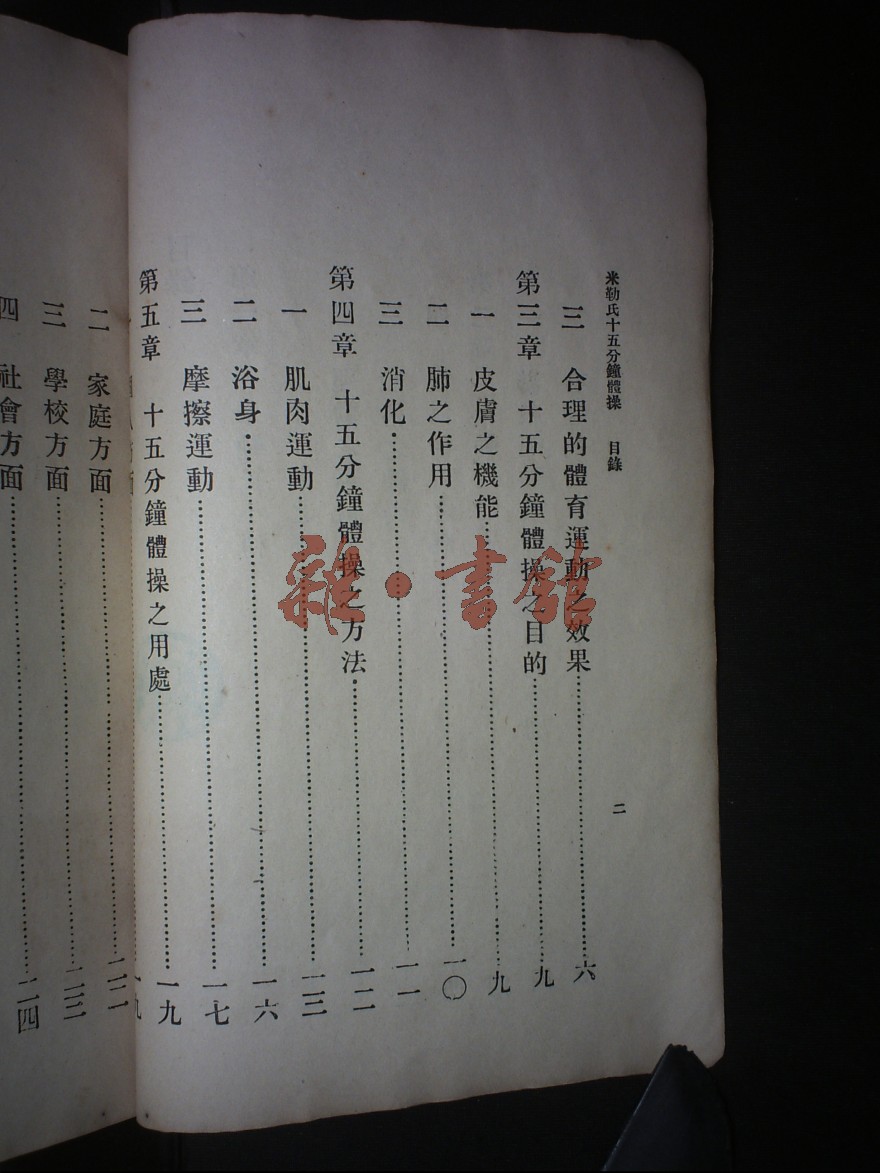 米勒氏十五分鐘體操 目錄 二
三 合理的體育運動之效果……六
第三章 十五分鐘體操之目的……九
一 皮膚之機能……九
二 肺之作用……一〇
三 消化……一一
第四章 十五分鐘體操之方法……一二
一 肌肉運動……一三
二 浴身……一六
三 摩擦運動……一七
第五章 十五分鐘體操之用處……一九
二 家庭方面……二二
三 學校方面……二三
四 社會方面……二四
雜·書館